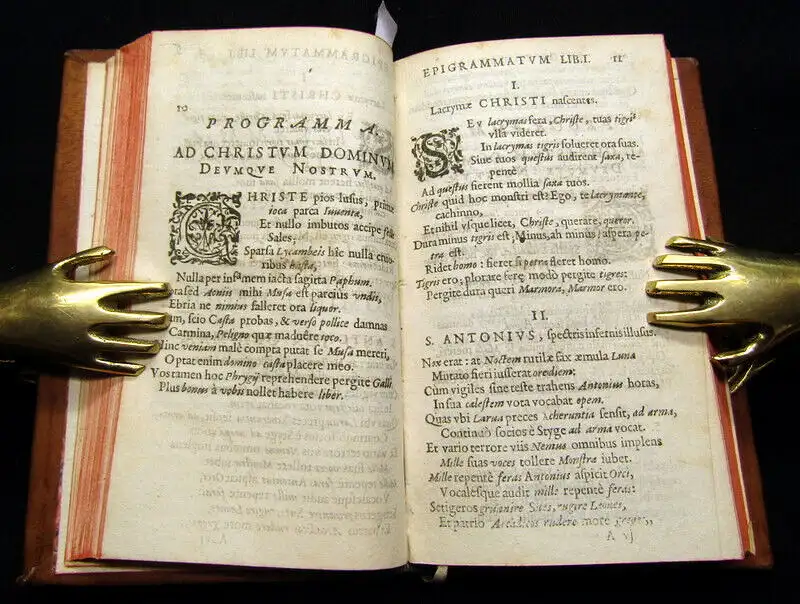 10
PROGRAMMA.
AD CHRISTVM DOMINVM
DEVMQVE NOSTRVM.
CHRISTE pios lusus, primæ
ioca parca Iuuentæ,
Et nullo imbutos accipe felle
Sales;
Sparsa Lycambeis hîc nulla cruo-
ribus hasta,
Nulla per infamem iacta sagitta Paphum.
sed Aonius mihi Musa est parcius vndis,
Ebria ne nimius falleret ora liquor.
scio Casta probas, & verso pollice damnas
Carmina, Peligno quæ maduêre ioco.
Hinc veniam malè compta putat se Musa mereri,
Optat enim domino casta placere meo.
Vos tamen hoc Phrygij reprehendere pergite Galli
Plus bonus à vobis nollet habere liber.
EPIGRAMMATVM LIB.I. 11
I.
Lacrymæ CHRISTI nascentis.
SEu lacrymas fera, Christe, tuas tigris
vlla videret.
In lacrymas tigris solueret ora suas.
Siue tuos questus audirent saxa, re-
pentè
Ad questus fierent mollia saxa tuos.
Christe quid hoc monstri est? Ego, te lacrymante,
cachinno,
Et nihil vsque licet, Christe, querare, queror.
Dura minus tigris est; Minus, ah minus! aspera pe-
tra est.
Ridet homo: fieret si petra fleret homo.
Tigris ero; plorare feræ modò pergite tigres:
Pergite dura queri Marmora, Marmor ero.
II.
S. ANTONIVS, spectris infernis illusus.
Nox erat: at Noctem rutilæ fax æmula Lunæ
Mutato fieri iusserat ore diem;
Cùm vigiles sine teste trahens Antonius horas,
In sua cælestem vota vocabat opem.
Quas vbi Larua preces Acheruntia sensit, ad arma,
Continuò socios è Styge ad arma vocat.
Et vario terrore viis Nemus omnibus implens
Mille suas voces tollere Monstra iubet.
Mille repentè feras Antonius aspicit Orci,
Vocalesque audit mille repentè feras:
Setigeros grunnire Sues, rugire Leones,
Et patrio Arcadicos rudere more greges,
A vj